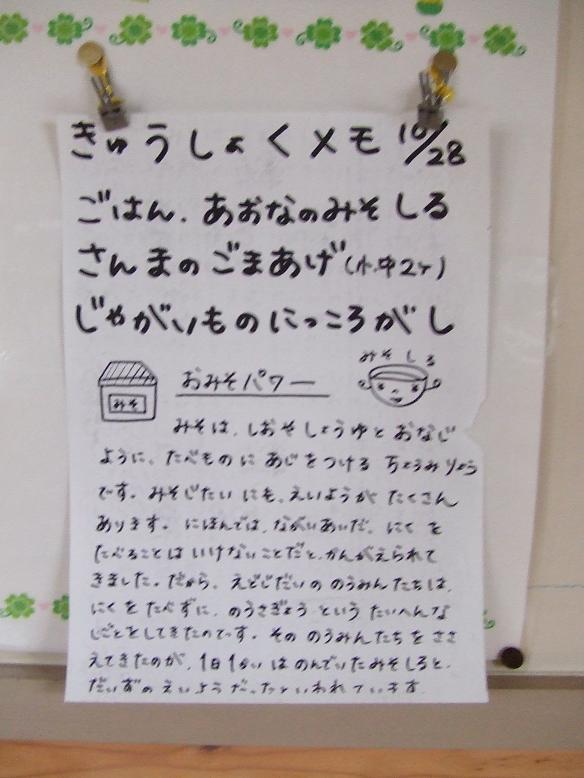 きゅうしょくメモ 10/28
ごはん、あおなのみそしる
さんまのごまあげ(小.中2ケ)
じゃがいものにっころがし
みそしる
みそ
おみそパワー
みそは、しおやしょうゆとおなじ
ように、たべものにあじをつけるちょうみりょう
です。みそじたいにも、えいようがたくさん
あります。にほんでは、ながいあいだ、にくを
たべることはいけないことだと、かんがえられて
きました。だから、えどじだいののうみんたちは、
にくをたべずに、のうさぎょうというたいへんな
しごとをしてきたのです。そののうみんたちをささ
えてきたのが、1日1かいはのんでいたみそしると、
だいずのえいようだったといわれています。